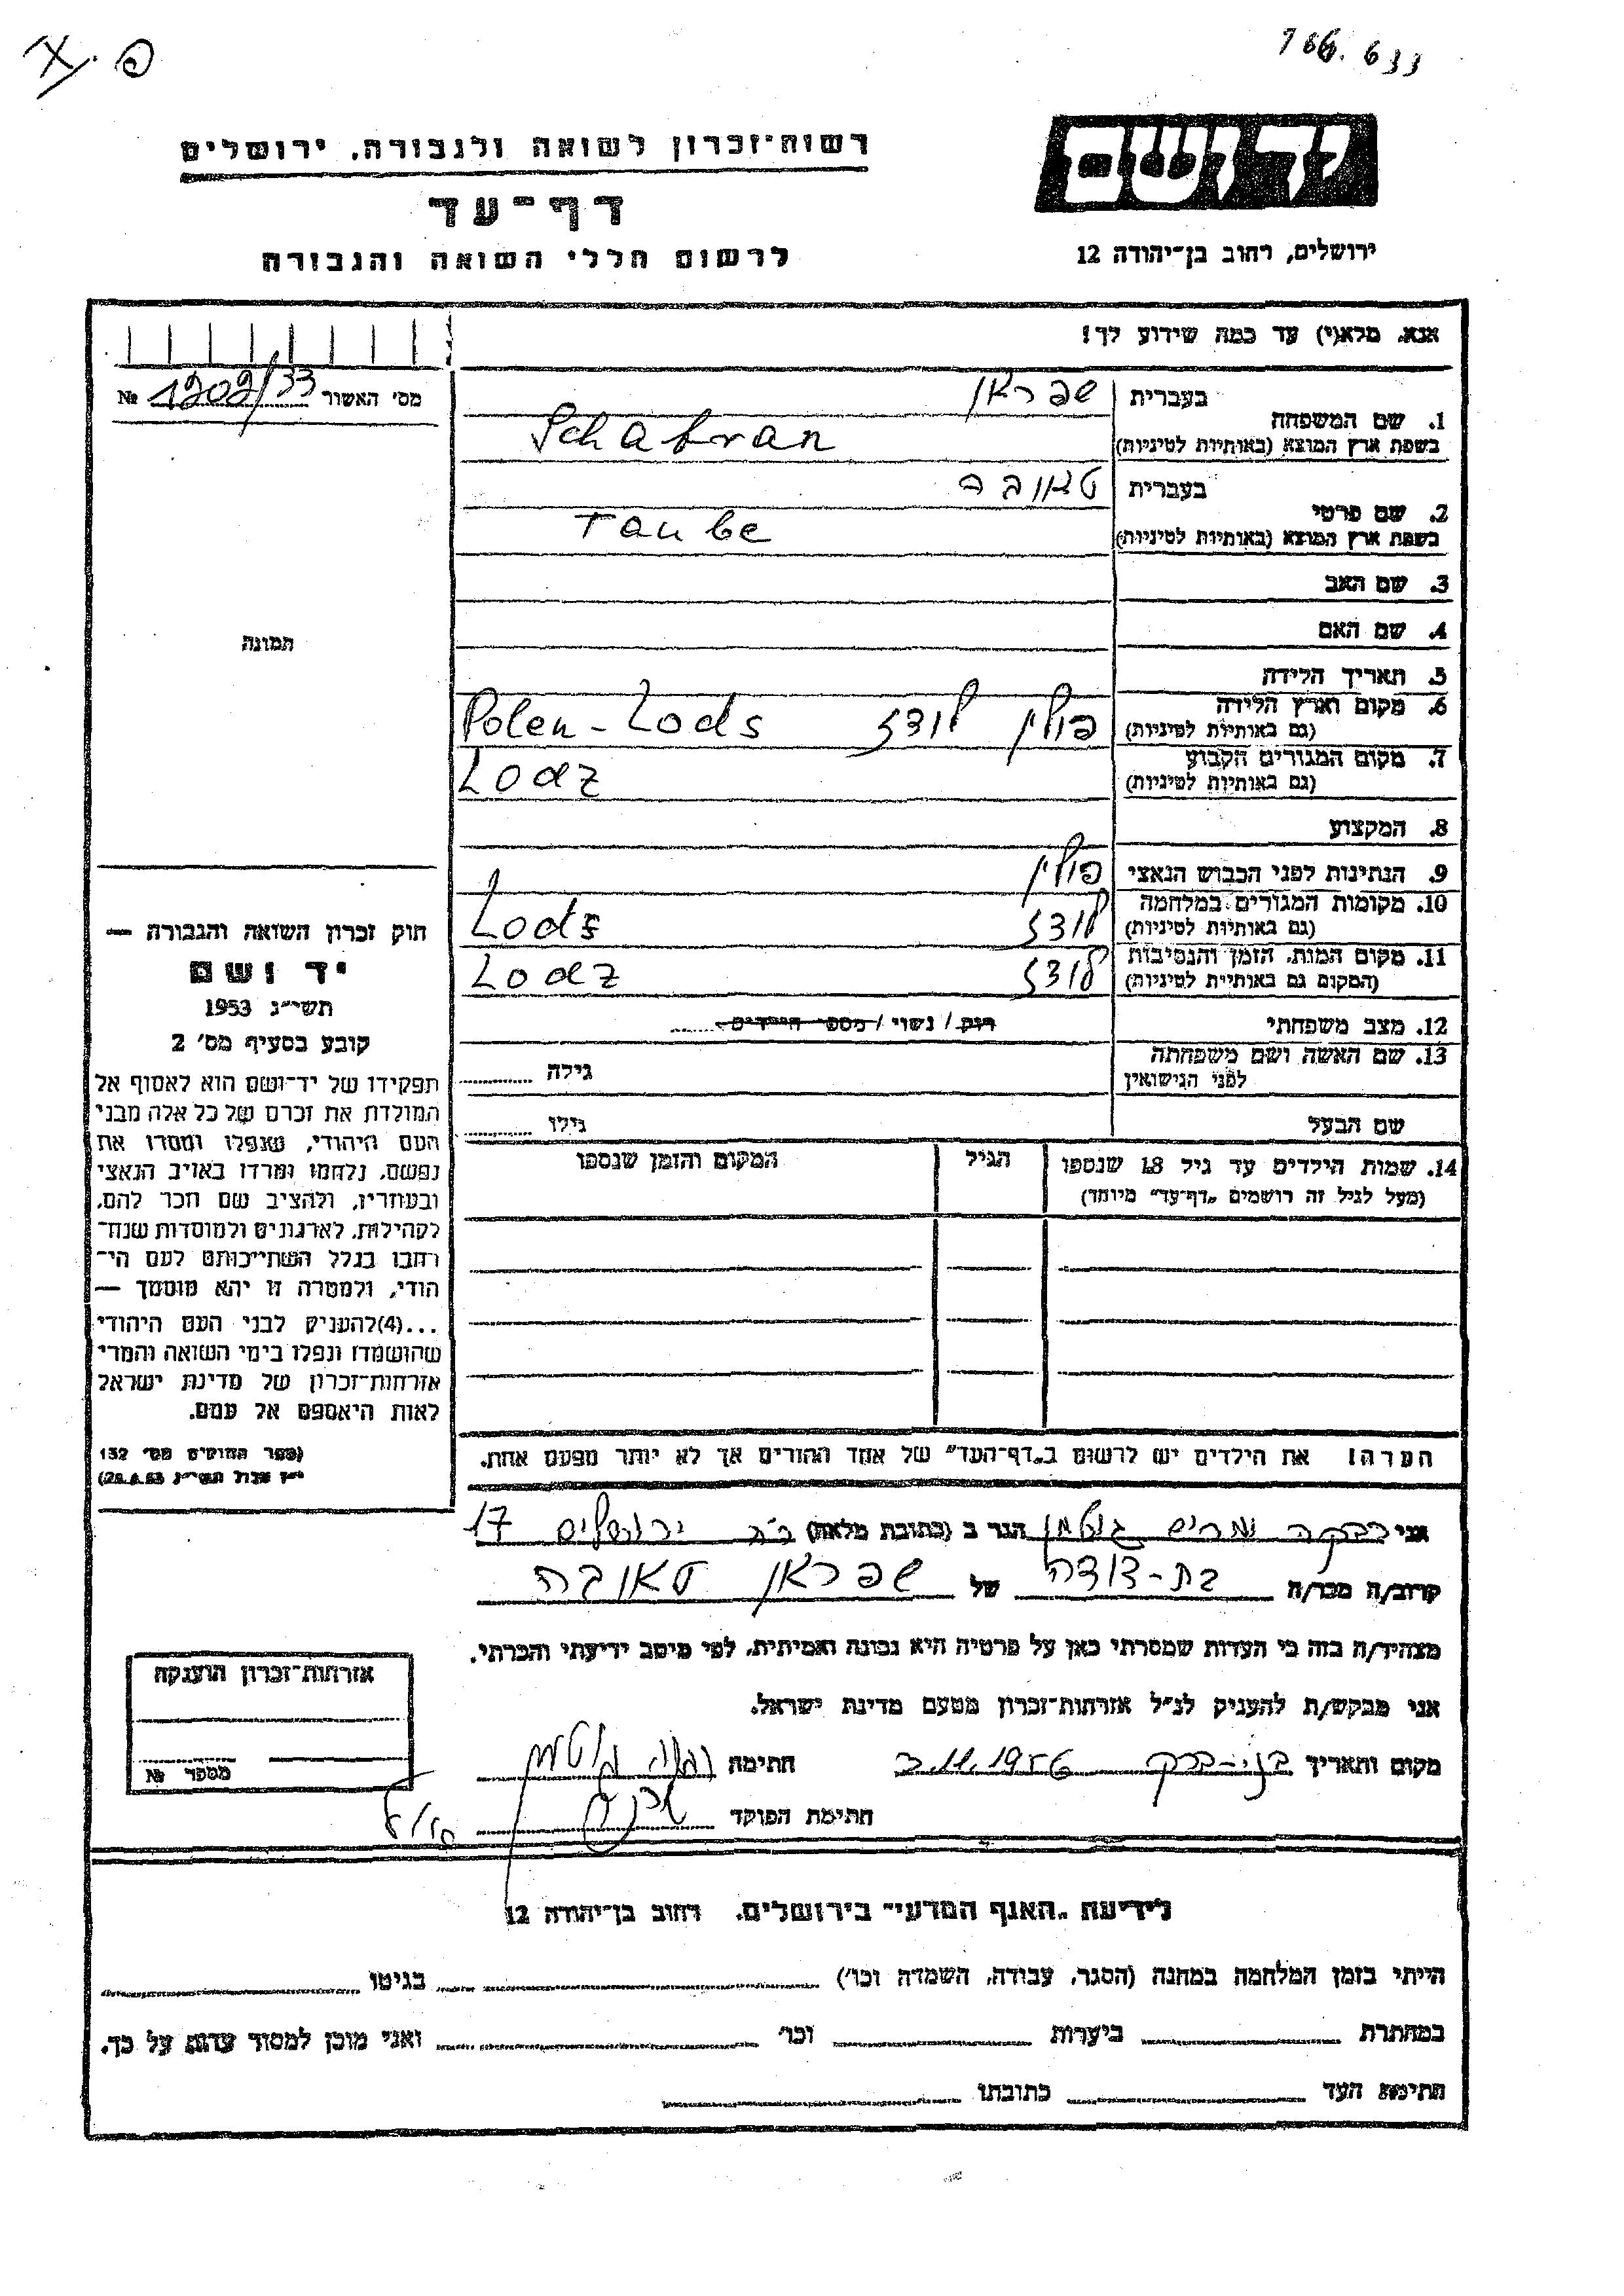 פ. א
766.633
יד ושם
ירושלים, רחוב בן־יהודה 12
רשות־זכרון לשואה ולגבורה, ירושלים
דף־עד
לרשום חללי השואה והגבורה
אנא, מלא(י) עד כמה שידוע לך!
מס' האשור 1202/33 №
תמונה
בעברית שפראן
1. שם המשפחה
בשפת ארץ המוצא (באותיות לטיניות) Schafran
בעברית טאובה
2. שם פרטי
בשפת ארץ המוצא (באותיות לטיניות) Taube
3. שם האב
4. שם האם
5. תאריך הלידה
6. מקום וארץ הלידה
(גם באותיות לטיניות) פולין לודז Polen - Lods
7. מקום המגורים הקבוע
(גם באותיות לטיניות) Lodz
8. המקצוע
9. הנתינות לפני הכבוש הנאצי פולין
10. מקומות המגורים במלחמה
(גם באותיות לטיניות) לודז Lods
11. מקום המות, הזמן והנסיבות
(המקום גם באותיות לטיניות) לודז Lodz
12. מצב משפחתי רוק / נשוי / מספר הילדים
13. שם האשה ושם משפחתה
לפני הנישואין גילה
שם הבעל גילו
14. שמות הילדים עד גיל 18 שנספו
(מעל לגיל זה רושמים „דף־עד" מיוחד)
הגיל
המקום והזמן שנספו
הערה! את הילדים יש לרשום ב„דף־העד" של אחד ההורים אך לא יותר מפעם אחת.
חוק זכרון השואה והגבורה —
יד ושם
תשי"ג 1953
קובע בסעיף מס' 2
תפקידו של יד־ושם הוא לאסוף אל
המולדת את זכרם של כל אלה מבני
העם היהודי, שנפלו ומסרו את
נפשם, נלחמו ומרדו באויב הנאצי
ובעוזריו, ולהציב שם וזכר להם,
לקהילות, לארגונים ולמוסדות שנח־
רבו בגלל השתייכותם לעם הי־
הודי, ולמטרה זו יהא מוסמך —
...(4)להעניק לבני העם היהודי
שהושמדו ונפלו בימי השואה והמרי
אזרחות־זכרון של מדינת ישראל
לאות היאספם אל עמם.
(ספר החוקים מס' 132
י"ז אלול תשי"ג 28.8.53)
אני רבקה מרים גוטמן הגר ב (כתובת מלאה) ב"ב ירושלים 17
קרוב/ה מכר/ה בת-דודה של שפראן טאובה
מצהיר/ה בזה כי העדות שמסרתי כאן על פרטיה היא נכונה ואמיתית, לפי מיטב ידיעתי והכרתי.
אני מבקש/ת להעניק לנ"ל אזרחות־זכרון מטעם מדינת ישראל.
מקום ותאריך בני-ברק 3.11.1956 חתימה
חתימת הפוקד
אזרחות־זכרון הוענקה
מספר №
לידיעת „האגף המדעי" בירושלים, רחוב בן־יהודה 12
הייתי בזמן המלחמה במחנה (הסגר, עבודה, השמדה וכו') בגיטו
במחתרת ביערות וכו' ואני מוכן למסור עדות על כך.
חתימת העד כתובתו